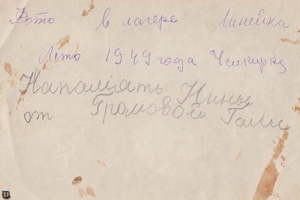 Фото в лагере Линейка
Лето 1949 года
На память Нины
от Громовой Гали